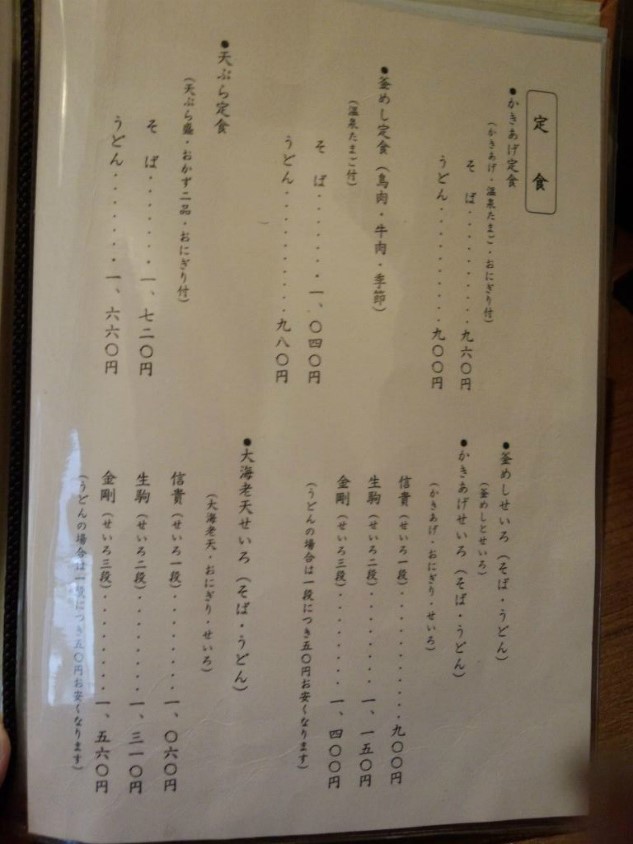 定食
●かきあげ定食
(かきあげ・温泉たまご・おにぎり付)
そば・・・・・・・・・・・九六〇円
うどん・・・・・・・・・・九〇〇円
●釜めし定食(鳥肉・牛肉・季節)
(温泉たまご付)
そば・・・・・・・・一、〇四〇円
うどん・・・・・・・・・・・九八〇円
●天ぷら定食
(天ぷら盛・おかず二品・おにぎり付)
そば・・・・・・・一、七二〇円
うどん・・・・・・・一、六六〇円
●釜めしせいろ(そば・うどん)
(釜めしとせいろ)
●かきあげせいろ(そば・うどん)
(かきあげ・おにぎり・せいろ)
信貴(せいろ一段)・・・・・・・・・・・九〇〇円
生駒(せいろ二段)・・・・・・・・一、一五〇円
金剛(せいろ三段)・・・・・・・・一、四〇〇円
(うどんの場合は一段につき五〇円お安くなります)
●大海老天せいろ(そば・うどん)
(大海老天・おにぎり・せいろ)
信貴(せいろ一段)・・・・・・・・一、〇六〇円
生駒(せいろ二段)・・・・・・・・一、三一〇円
金剛(せいろ三段)・・・・・・・・一、五六〇円
(うどんの場合は一段につき五〇円お安くなります)